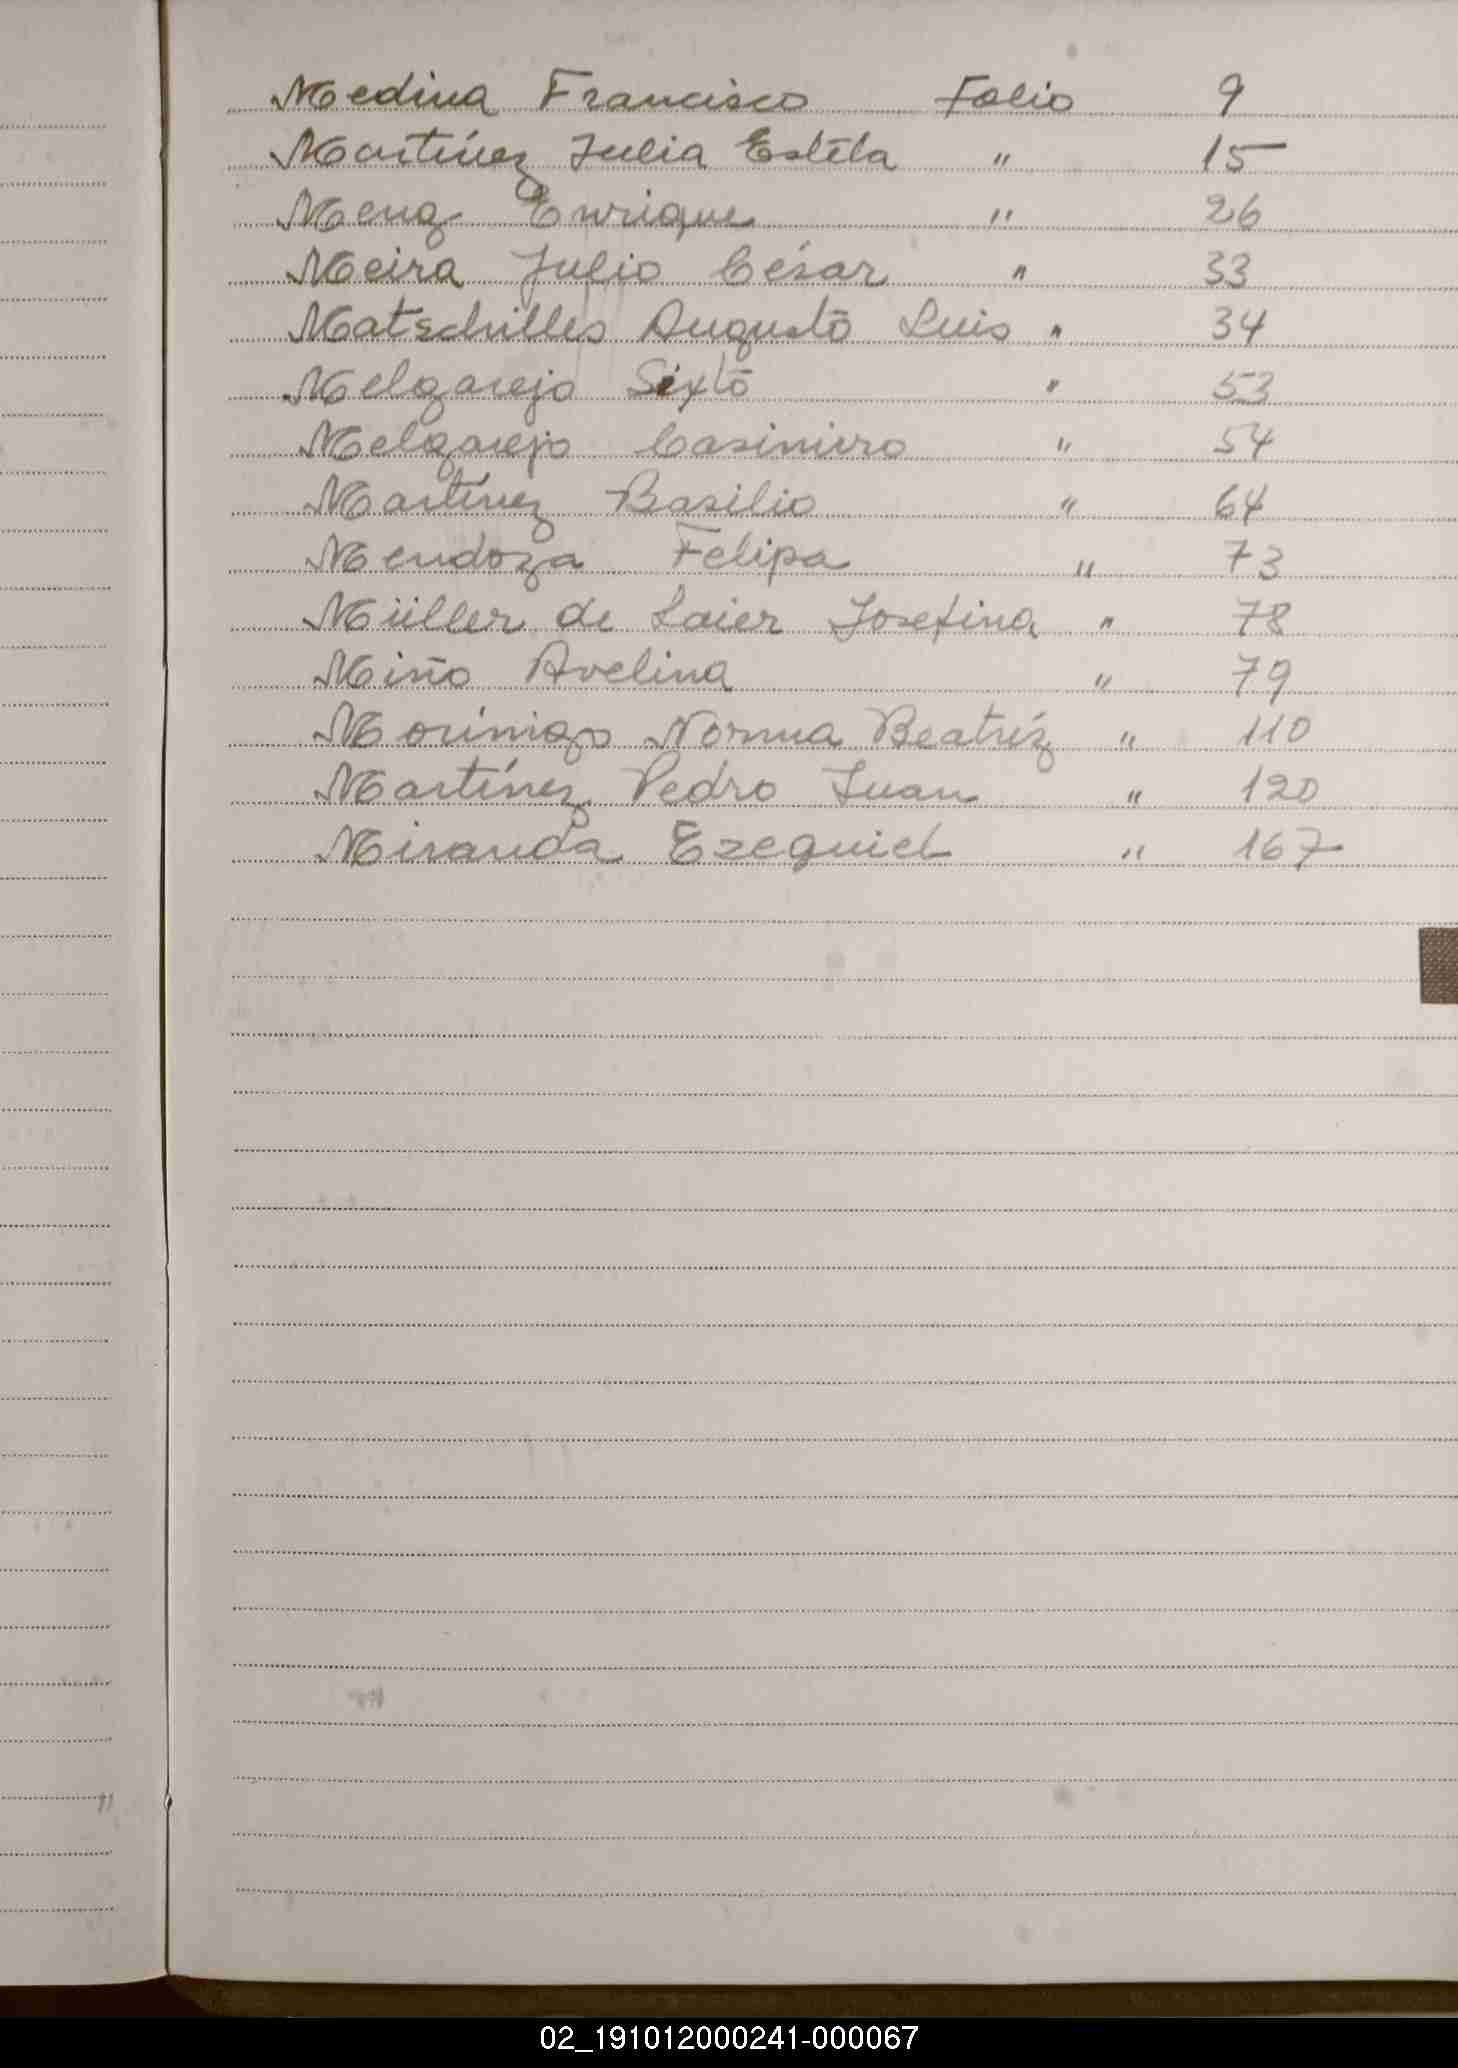 Medina Francisco Folio 9
Martínez Julia Estela " 15
Menz Enrique " 26
Meira Julio César " 33
Matschulles Augusto Luis " 34
Melgarejo Sixto " 53
Melgarejo Casimiro " 54
Martínez Basilio " 64
Mendoza Felipa " 73
Müller de Laier Josefina " 78
Miño Avelina " 79
Morínigo Norma Beatríz " 110
Martínez Pedro Juan " 120
Miranda Ezequiel " 167
02_191012000241-000067